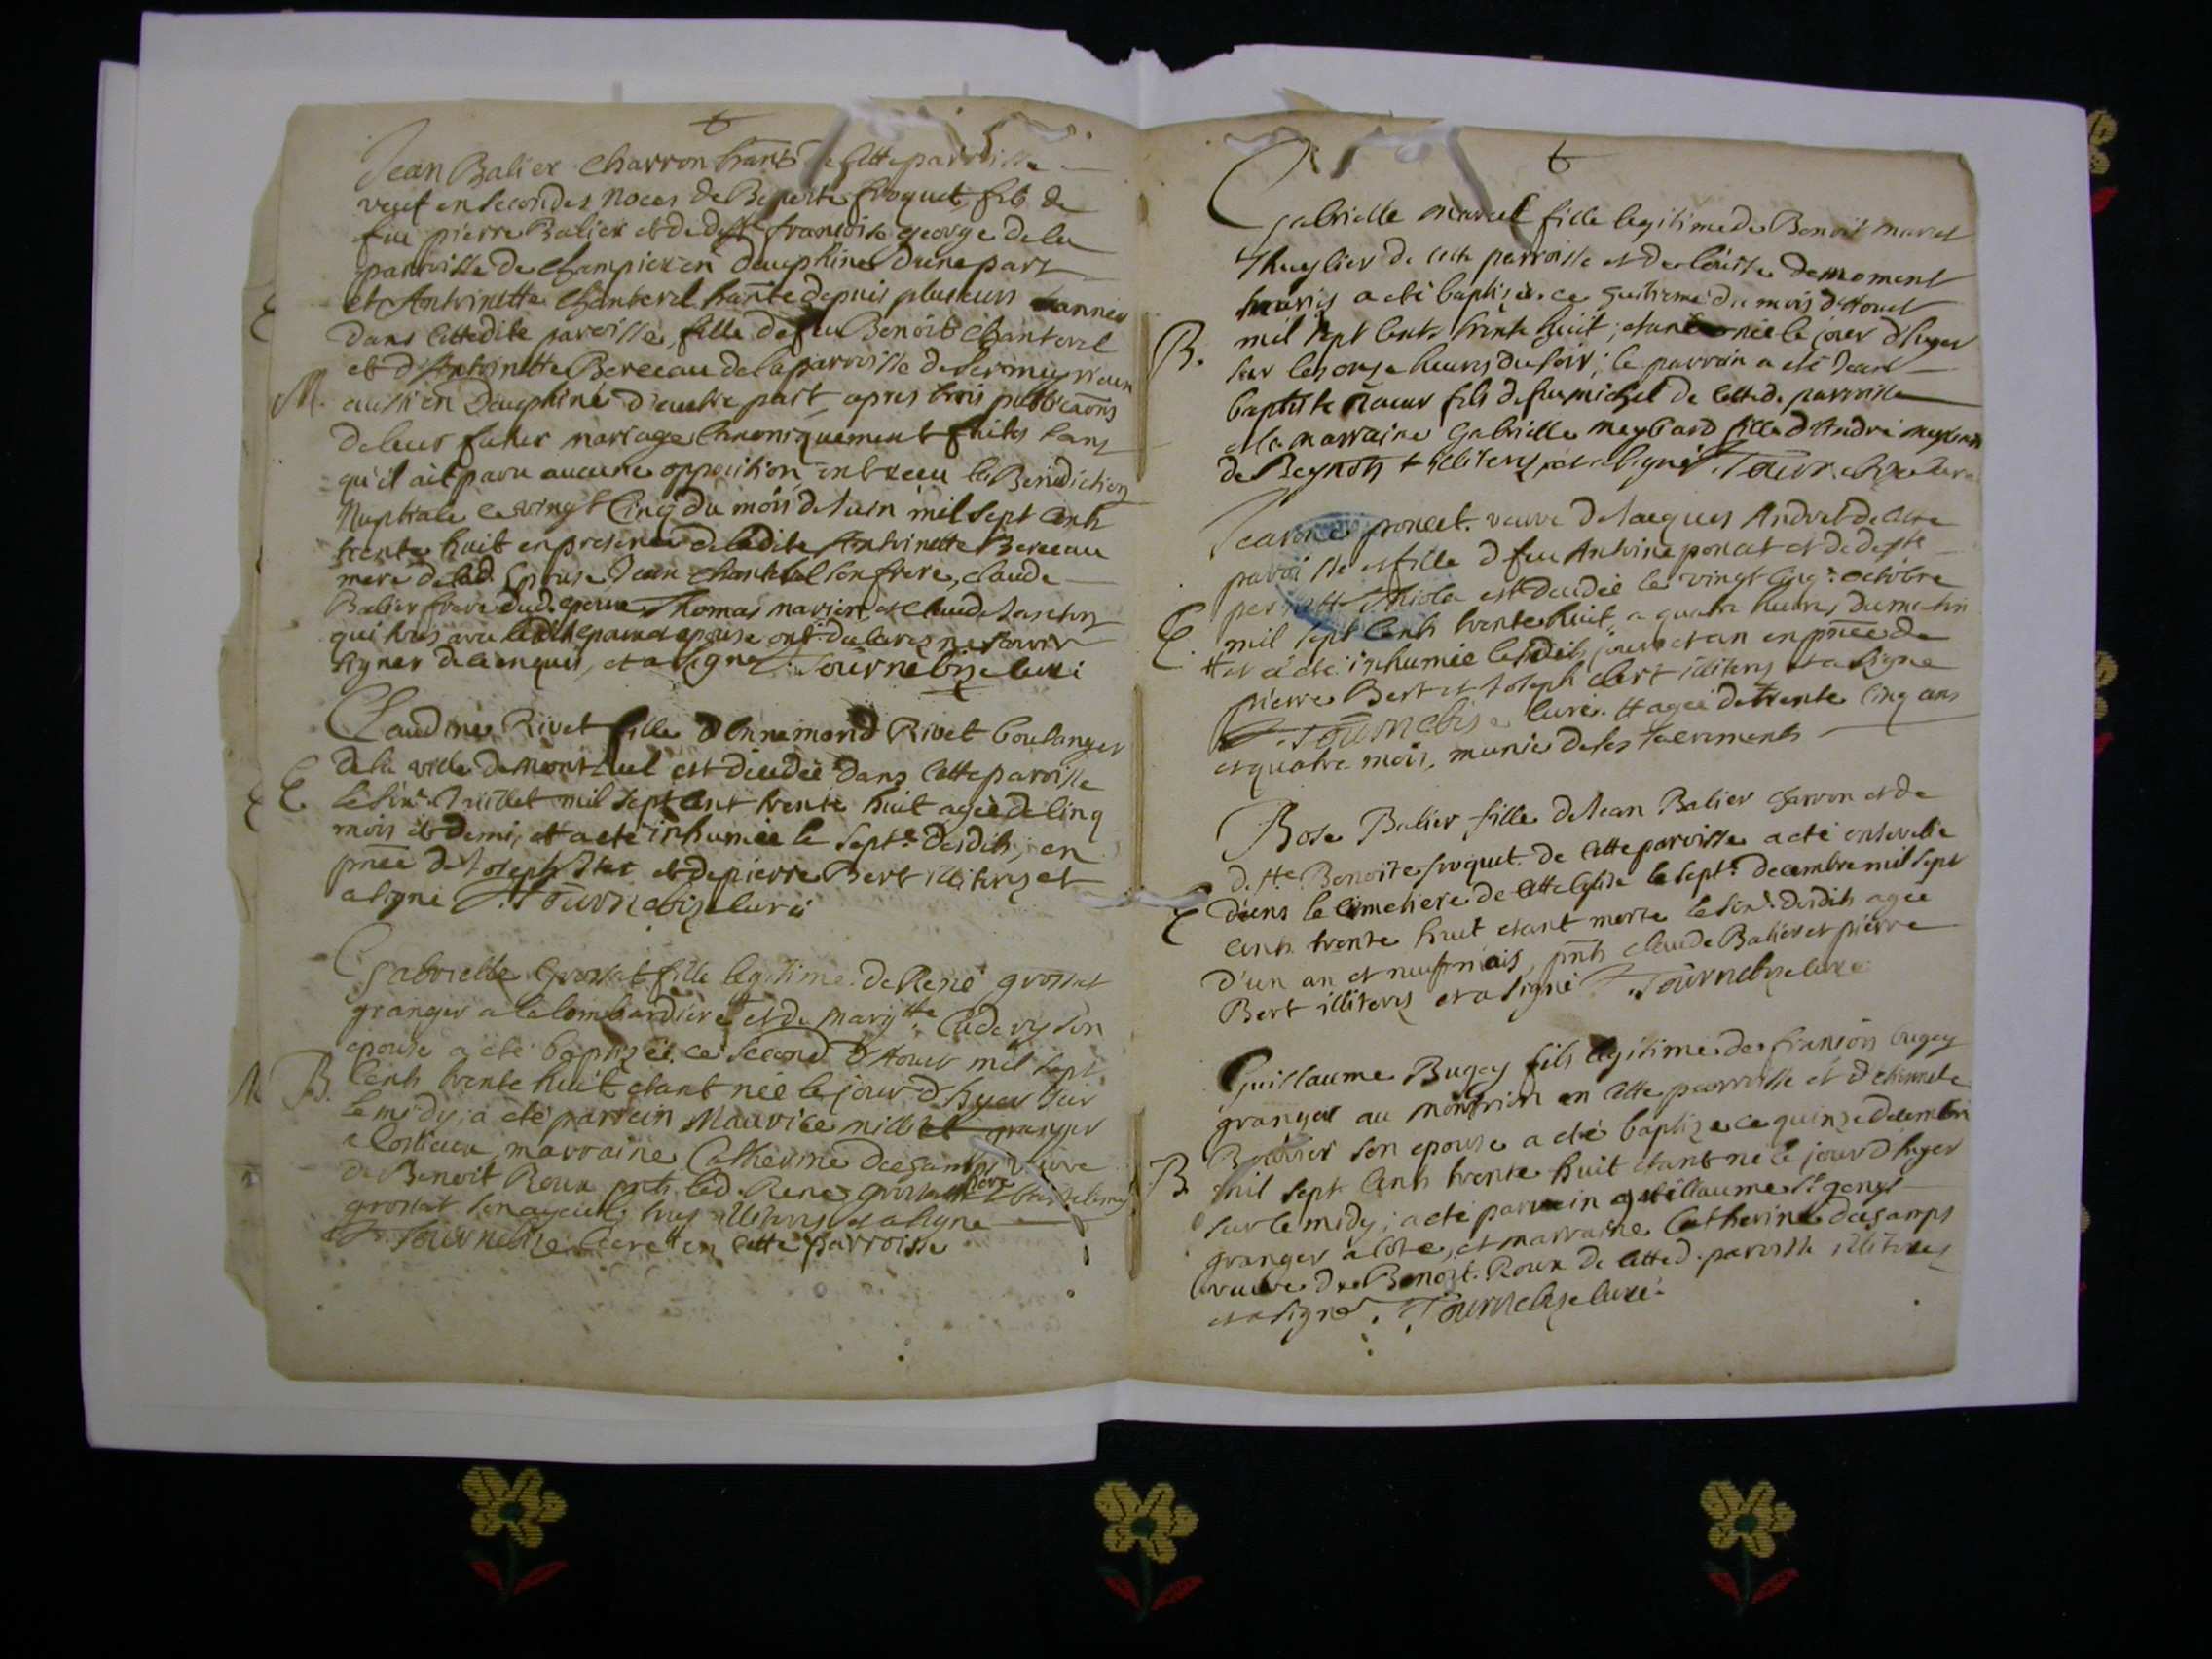 Jean Balier charron hãnt de cette parroisse
veuf en secondes noces de Benoite froquet, fils de
feu pierre Balier et de deffte françoise george de la
parroisse de champier en dauphiné d'une part
et Antoinette chantevel hãnte depuis plusieurs années
dans cettedite paroisse, fille de feu Benoit chantevel
et d'Antoinette Berceau de la parroisse de
M. aussi en Dauphiné d'autre part, apres trois publicãons
de leur futur mariage canoniquement faites sans
qu'il ait paru aucune opposition, ont receu la Benediction
Nuptiale ce vingt cinq du mois de Juin mil sept cents
trente huit en presence de ladite Antoinette Berceau
mere de lad. Epouse Jean chantevel son frere, claude
Balier frere dud. epoux Thomas marion et claude
qui tous avec lesdits epoux et epouse ont declarés ne scavoir
signer de ce enquis, et a signé F. Tournebize curé
Claudine Rivet fille d'Ennemond Rivet boulanger
de la ville de montluel est décédée dans cette paroisse
E. le six.e Juillet mil sept cent trente huit agée de cinq
mois et demi, et a eté inhumée le sept.e desdits, en
pñce de Joseph et de pierre Bert illiterés et
a signé F. Tournebize curé
Gabrielle grossat fille legitime de René grossat
granger a la lombardiere et de margtte son
epouse a eté baptizée ce second d'Aout mil sept
B. cents trente huit etant née le jour d'hyer sur
le midy; a eté parrein Maurice granger
a marraine Catherine decamps veuve
de Benoit Roux pnts led. René grossat pere et
grossat son ayeul tous illiterés et a signé
F. Tournebize curé en cette parroisse
Gabrielle marcel fille legitime de Benoit marcel
de cette parroisse et de de moment
mariés a eté baptisée ce huitieme du mois d'Aout
B. mil sept cents trente huit; etant née le jour d'hyer
sur les onze heures du soir; le parrain a eté Jean
baptiste fils de feu michel de cetted. parroisse
et la marraine Gabrielle meyband fille d'André meyband
de Beynost illiterés et a signé F. Tournebize curé
Jeanne poncet veuve de Jacques Andret de cette
paroisse et fille de feu Antoine poncet et de deffte
est decedée le vingt cinq.e octobre
E. mil sept cents trente huit, a quatre heures du matin
# et a eté inhumée lesdits jour et an en pñce de
pierre Bert et Joseph illiterés et a signé
F. Tournebize curé. # agée de trente cinq ans
et quatre mois, munie de ses sacrements
Rose Balier fille de Jean Balier charron et de
d.fte Benoite froquet de cette paroisse a eté ensevelie
E dans le cimetiere de cette eglise le sept.e decembre mil sept
cents trente huit etant morte le six.e desdits agée
d'un an et neuf mois, pnts claude Balier et pierre
Bert illiterés et a signé F. Tournebize curé
Guillaume Bugey fils legitime de françois bugey
granger au en cette parroisse et d'etiennette
son epouse a eté baptizé ce quinze decembre
B. mil sept cents trente huit etant né le jour d'hyer
sur le midy; a eté parrein guillaume
granger a et marraine Catherine decamps
veuve de Benoit Roux de cetted. paroisse illiterés
et a signé. F. Tournebize curé.